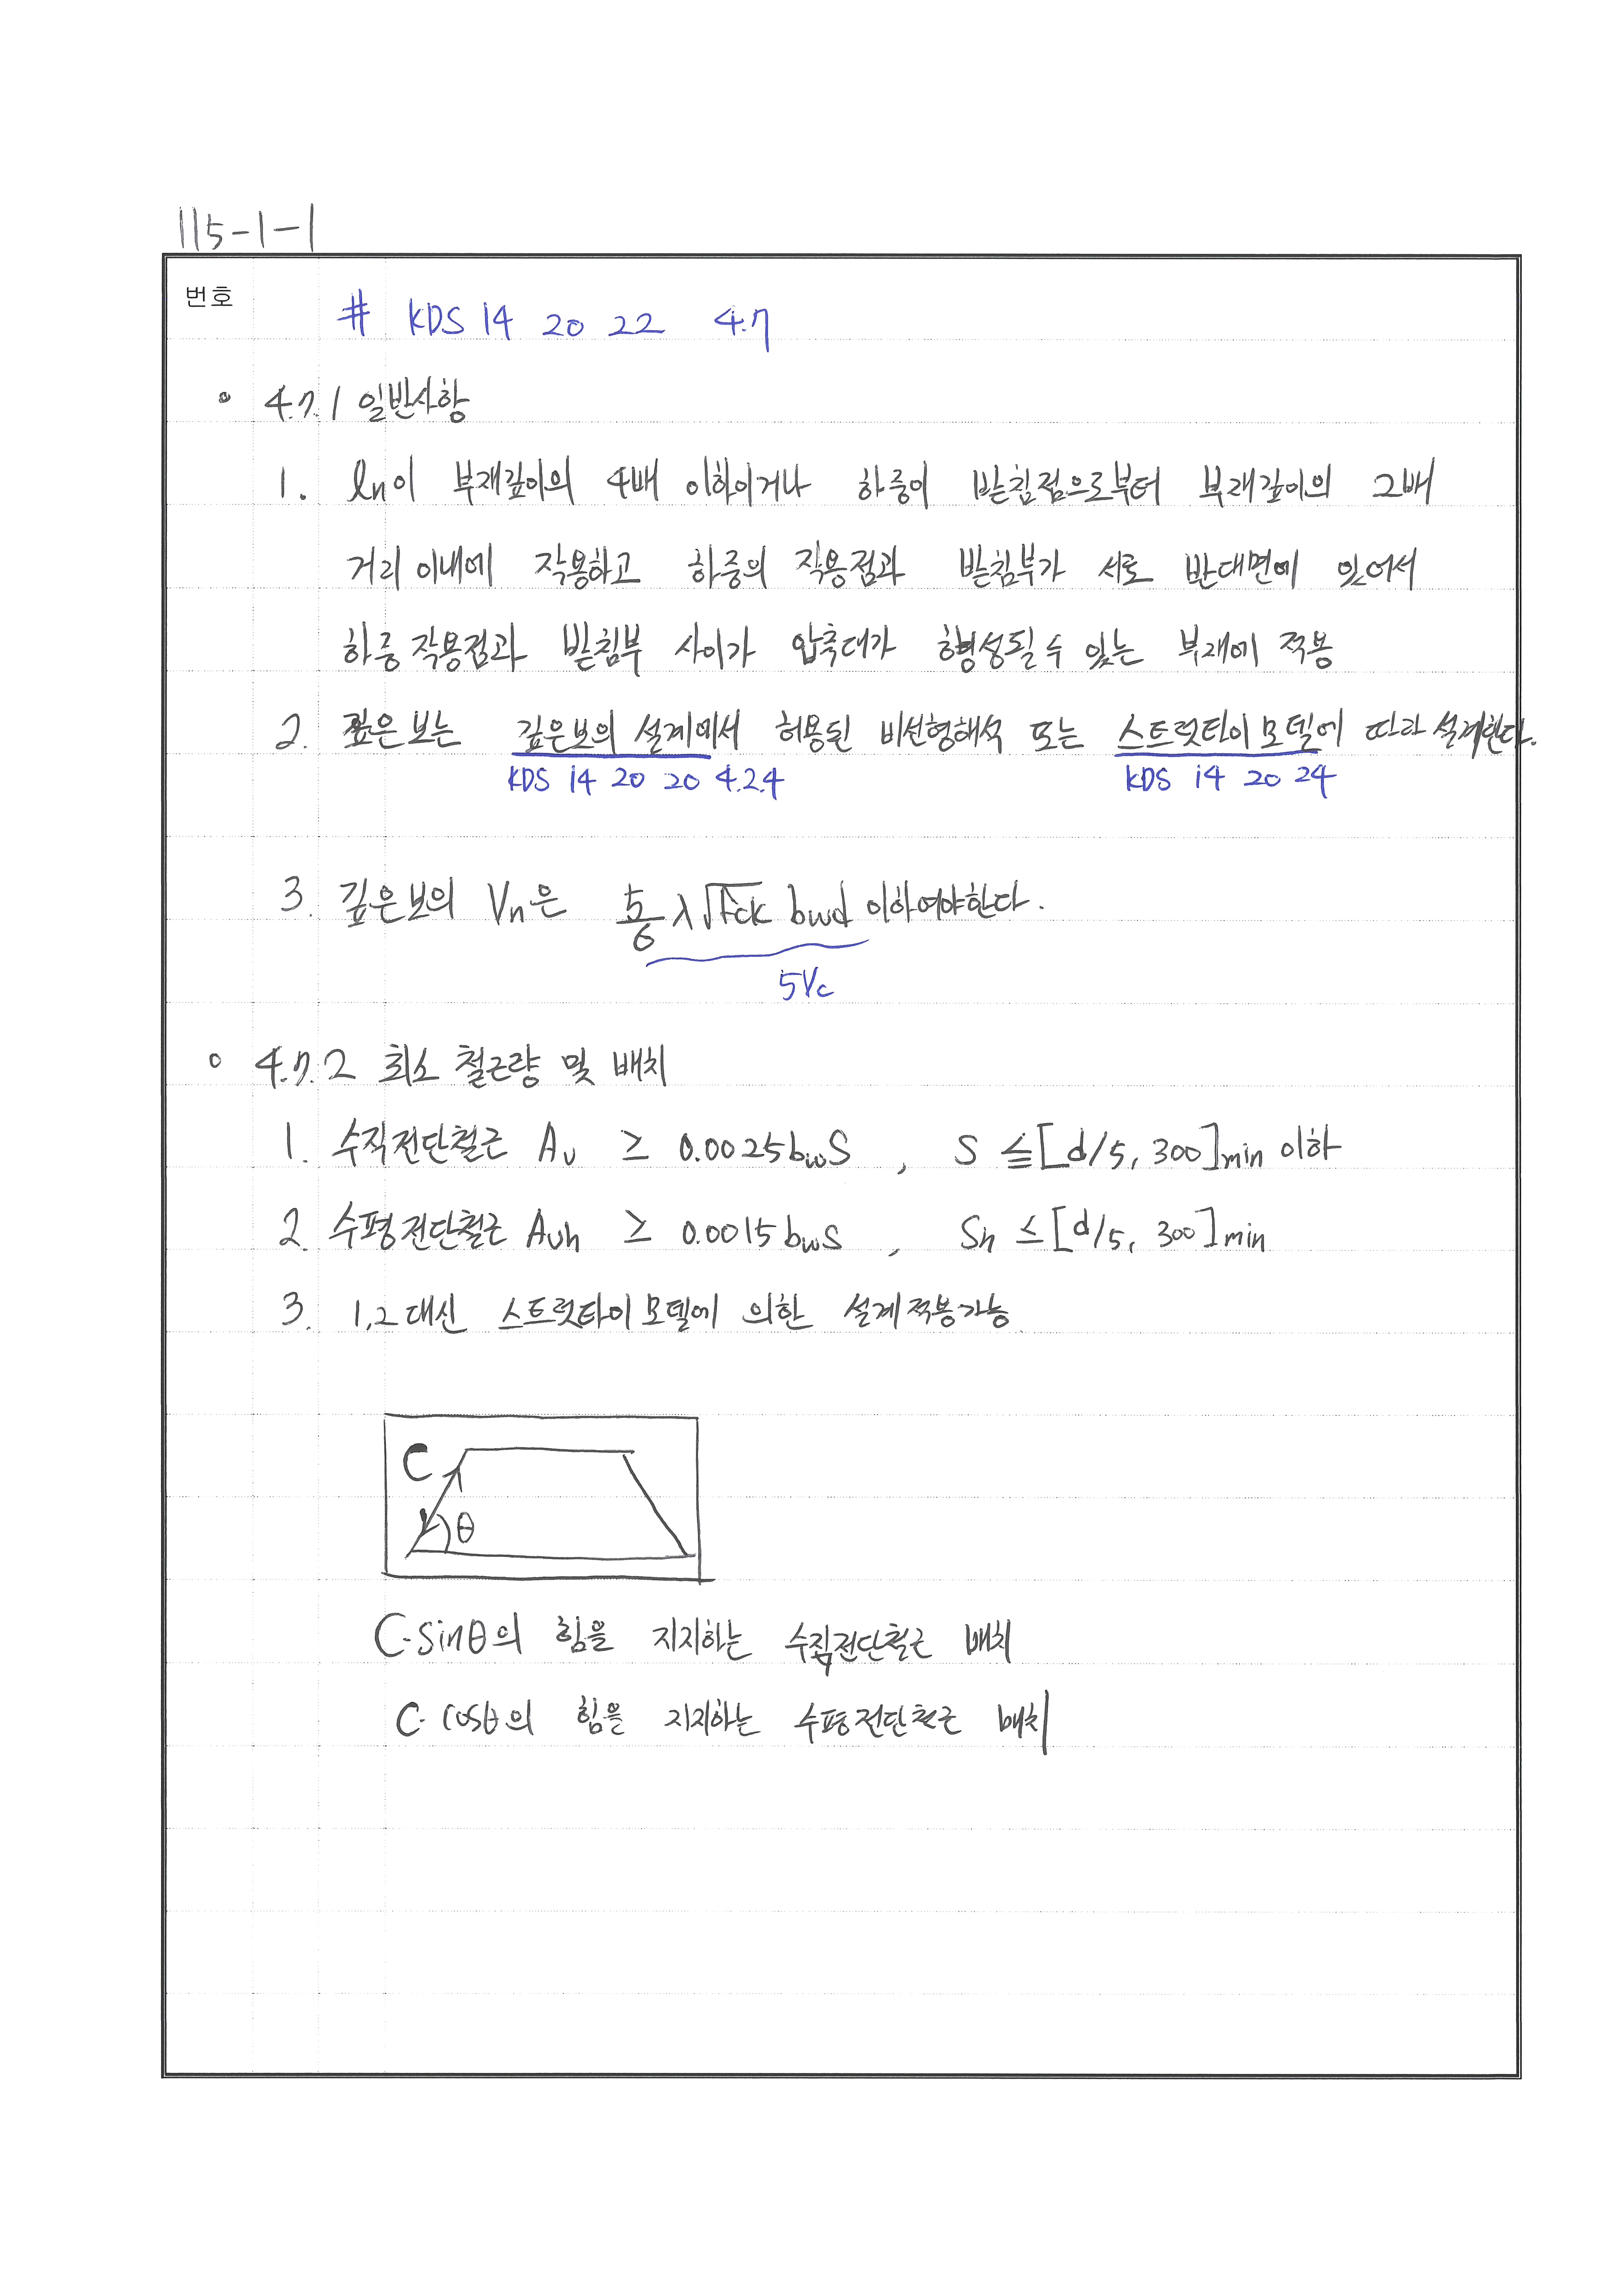 115-1-1
번호
# KDS 14 20 22 4.7
◦ 4.7.1 일반사항
1. ln이 부재깊이의 4배 이하이거나 하중이 받침점으로부터 부재깊이의 2배
거리 이내에 작용하고 하중의 작용점과 받침부가 서로 반대면에 있어서
하중 작용점과 받침부 사이가 압축대가 형성될 수 있는 부재에 적용
2. 깊은보는 깊은보의 설계에서 허용된 비선형해석 또는 스트럿타이 모델에 따라 설계한다.
KDS 14 20 20 4.2.4 KDS 14 20 24
3. 깊은보의 Vn은 5/6 λ√fck bwd 이하여야한다.
5Vc
◦ 4.7.2 최소 철근량 및 배치
1. 수직전단철근 Av ≥ 0.0025bwS , S ≦ [d/5, 300]min 이하
2. 수평전단철근 Avh ≥ 0.0015bwS , Sh ≤ [d/5, 300]min
3. 1,2 대신 스트럿타이 모델에 의한 설계적용가능
C
θ
C·sinθ의 힘을 지지하는 수직전단철근 배치
C·cosθ의 힘을 지지하는 수평전단철근 배치